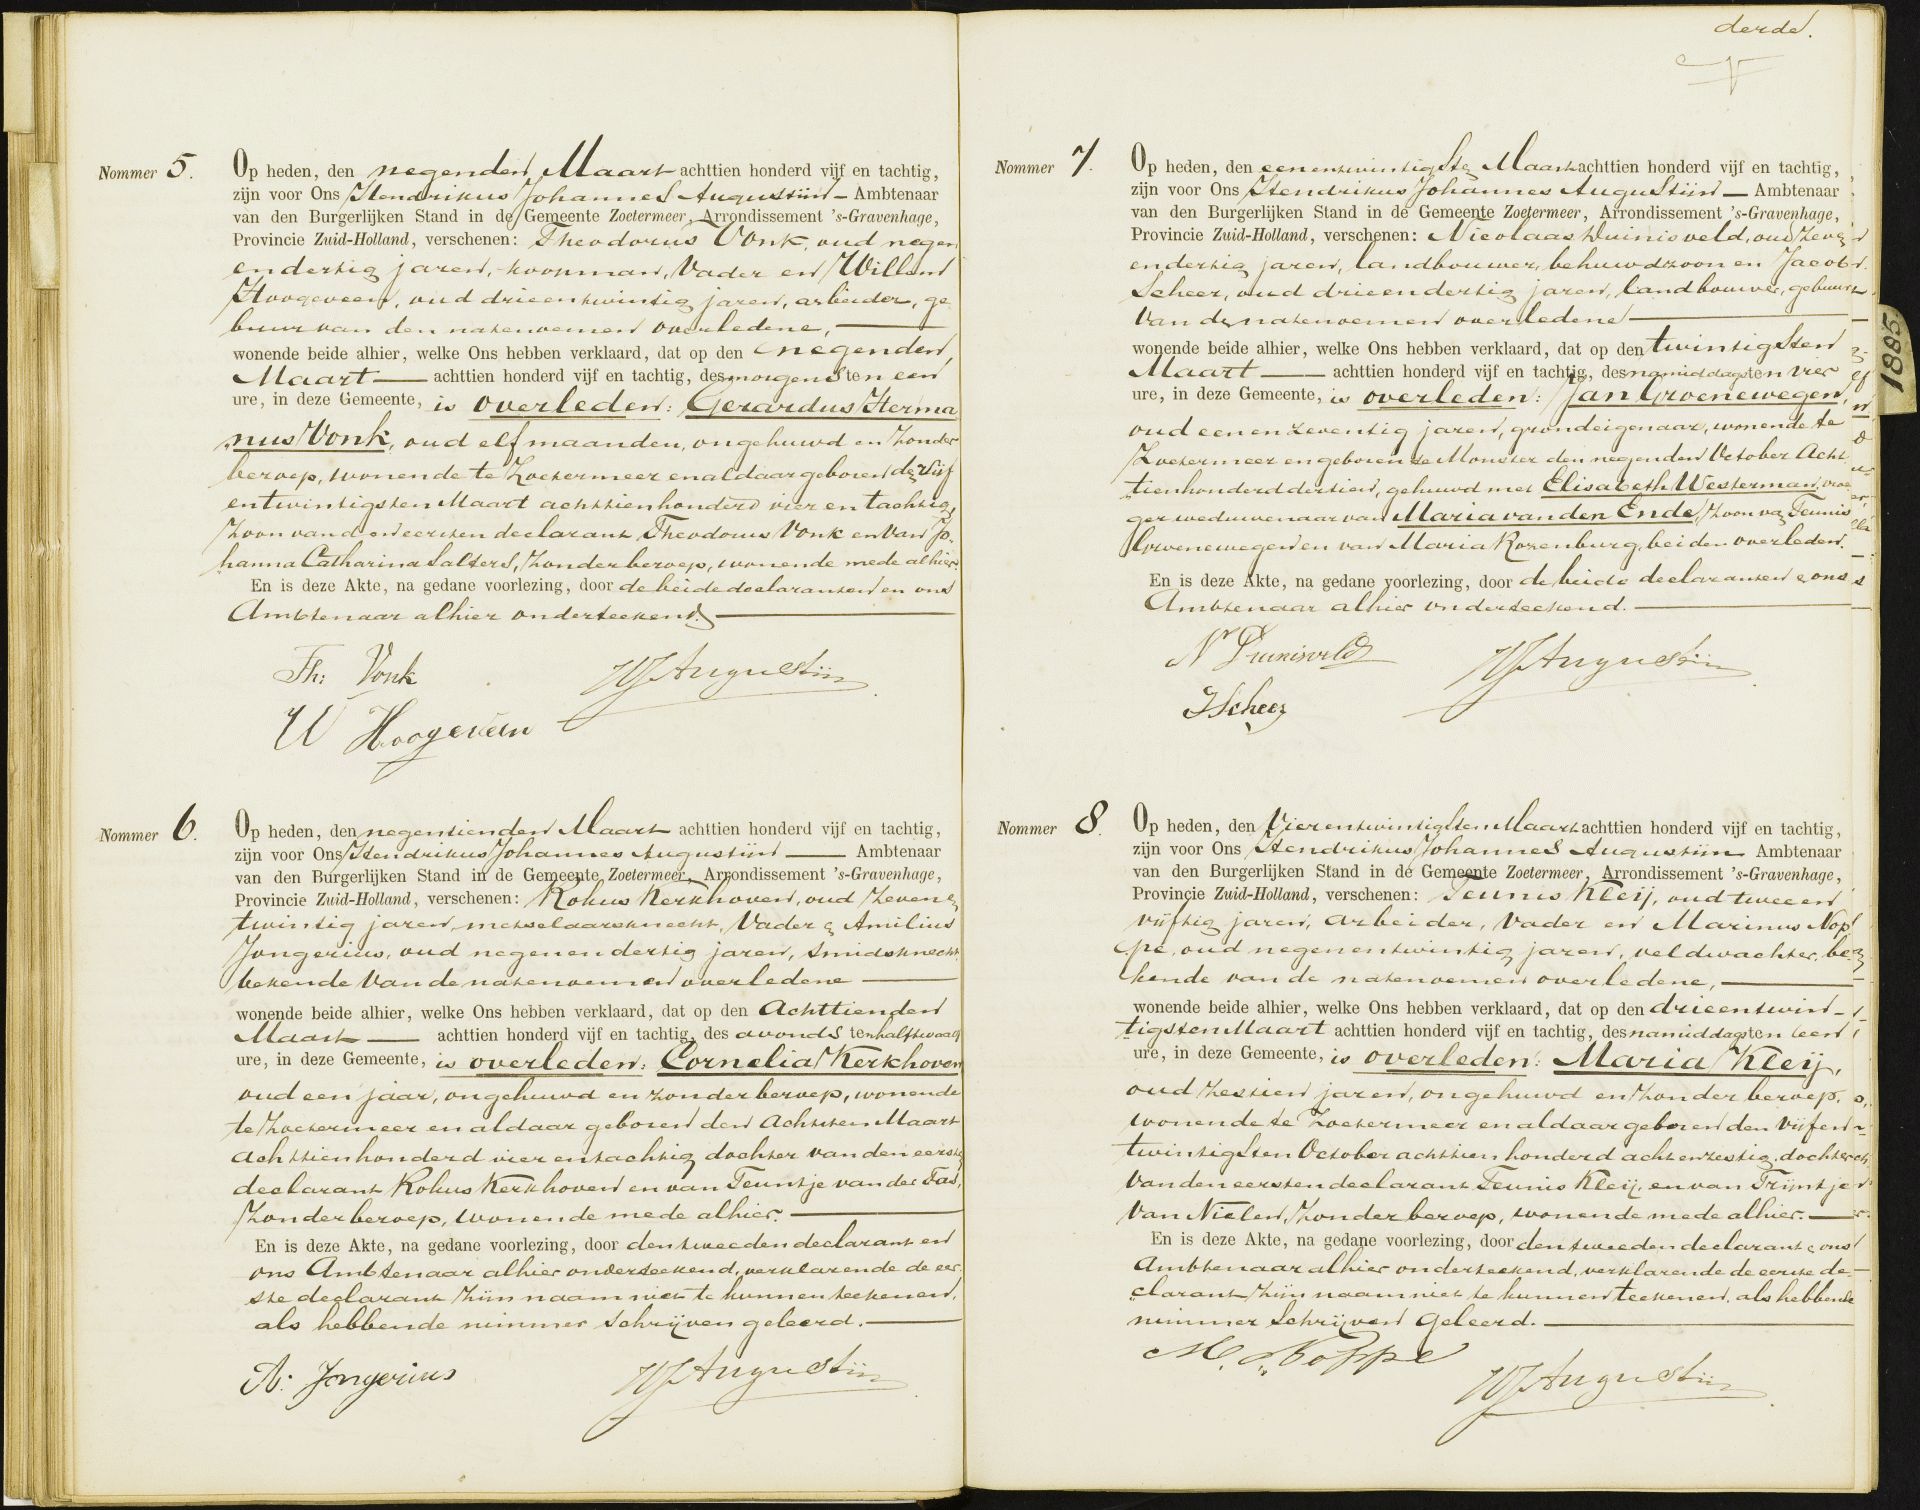 Nommer 5. Op heden, den negenden Maart achttien honderd vijf en tachtig,
zijn voor Ons Hendrikus Johannes Augustijn – Ambtenaar
van den Burgerlijken Stand in de Gemeente Zoetermeer, Arrondissement 's-Gravenhage,
Provincie Zuid-Holland, verschenen: Theodorus Vonk, oud negen
en dertig jaren, koopman, Vader en Willem
Hoogeveen, oud drieentwintig jaren, arbeider, ge
buur van den natenoemen overledene,
wonende beide alhier, welke Ons hebben verklaard, dat op den negenden
Maart — achttien honderd vijf en tachtig, des morgens ten een
ure, in deze Gemeente, is overleden: Gerardus Herma
nus Vonk, oud elf maanden, ongehuwd en zonder
beroep, wonende te Zoetermeer en aldaar geboren de vijf
entwintigsten Maart achttienhonderd vier en tachtig,
Zoon van den eersten declarant Theodorus Vonk en van Jo-
hanna Catharina Salters, zonder beroep, wonende mede alhier.
En is deze Akte, na gedane voorlezing, door de beide declaranten en ons
Ambtenaar alhier onderteekend.
Th: Vonk
HJAugustijn
W Hoogeveen
Nommer 6. Op heden, den negentienden Maart achttien honderd vijf en tachtig,
zijn voor Ons Hendrikus Johannes Augustijn — Ambtenaar
van den Burgerlijken Stand in de Gemeente Zoetermeer, Arrondissement 's-Gravenhage,
Provincie Zuid-Holland, verschenen: Rokus Kerkhoven, oud zeven &
twintig jaren, metselaarsknecht, Vader & Amilius
Jongerius, oud negenendertig jaren, smidsknecht
bekende van de natenoemen overledene
wonende beide alhier, welke Ons hebben verklaard, dat op den Achttienden
Maart — achttien honderd vijf en tachtig, des avonds ten halftwaalf
ure, in deze Gemeente, is overleden: Cornelia Kerkhoven
oud een jaar, ongehuwd en zonder beroep, wonende
te Zoetermeer en aldaar geboren den Achtsten Maart
achttienhonderd vier entachtig dochter van den eerste
declarant Rokus Kerkhoven en van Teuntje van der Tas,
zonder beroep, wonende mede alhier.
En is deze Akte, na gedane voorlezing, door den tweeden declarant en
ons Ambtenaar alhier onderteekend, verklarende de eer-
ste declarant zijn naam niet te kunnen teekenen,
als hebbende nimmer schrijven geleerd.
A. Jongerius
HJAugustijn
derde.
Nommer 7. Op heden, den eenentwintigste Maart achttien honderd vijf en tachtig,
zijn voor Ons Hendrikus Johannes Augustijn — Ambtenaar
van den Burgerlijken Stand in de Gemeente Zoetermeer, Arrondissement 's-Gravenhage,
Provincie Zuid-Holland, verschenen: Nicolaas Duinisveld, oud zeven
endertig jaren, landbouwer, behuwdzoon en Jacob
Scheer, oud drieendertig jaren, landbouwer, gebuur
van de natenoemen overledene
wonende beide alhier, welke Ons hebben verklaard, dat op den twintigsten
Maart — achttien honderd vijf en tachtig, des namiddags ten vier
ure, in deze Gemeente, is overleden: Jan Groenewegen,
oud eenenzeventig jaren, grondeigenaar, wonende te
Zoetermeer en geboren te Monster den negenden October Acht
tienhonderd dertien, gehuwd met Elisabeth Westerman, vroe
ger weduwenaar van Maria van den Ende, zoon van Teunis
Groenewegen en van Maria Rozenburg, beiden overleden.
En is deze Akte, na gedane voorlezing, door de beide declaranten & ons
Ambtenaar alhier onderteekend.
N Duinisveld
HJAugustijn
JScheer
1885.
Nommer 8. Op heden, den Vierentwintigsten Maart achttien honderd vijf en tachtig,
zijn voor Ons Hendrikus Johannes Augustijn Ambtenaar
van den Burgerlijken Stand in de Gemeente Zoetermeer, Arrondissement 's-Gravenhage,
Provincie Zuid-Holland, verschenen: Teunis Kleij, oud twee en
vijftig jaren, arbeider, Vader en Marinus Nop
pe, oud negenentwintig jaren, veldwachter, be-
kende van de natenoemen overledene,
wonende beide alhier, welke Ons hebben verklaard, dat op den drieentwin-
tigsten Maart achttien honderd vijf en tachtig, des namiddags ten een
ure, in deze Gemeente, is overleden: Maria Kleij,
oud zestien jaren, ongehuwd en zonder beroep,
wonende te Zoetermeer en aldaar geboren den vijfen
twintigsten October achttien honderd achtenzestig, dochter
van den eersten declarant Teunis Kleij, en van Trijntje
van Nielen, zonder beroep, wonende mede alhier.
En is deze Akte, na gedane voorlezing, door den tweeden declarant & ons
Ambtenaar alhier onderteekend, verklarende de eerste de-
clarant zijn naam niet te kunnen teekenen, als hebbende
nimmer schrijven geleerd.
M. Noppe
HJAugustijn